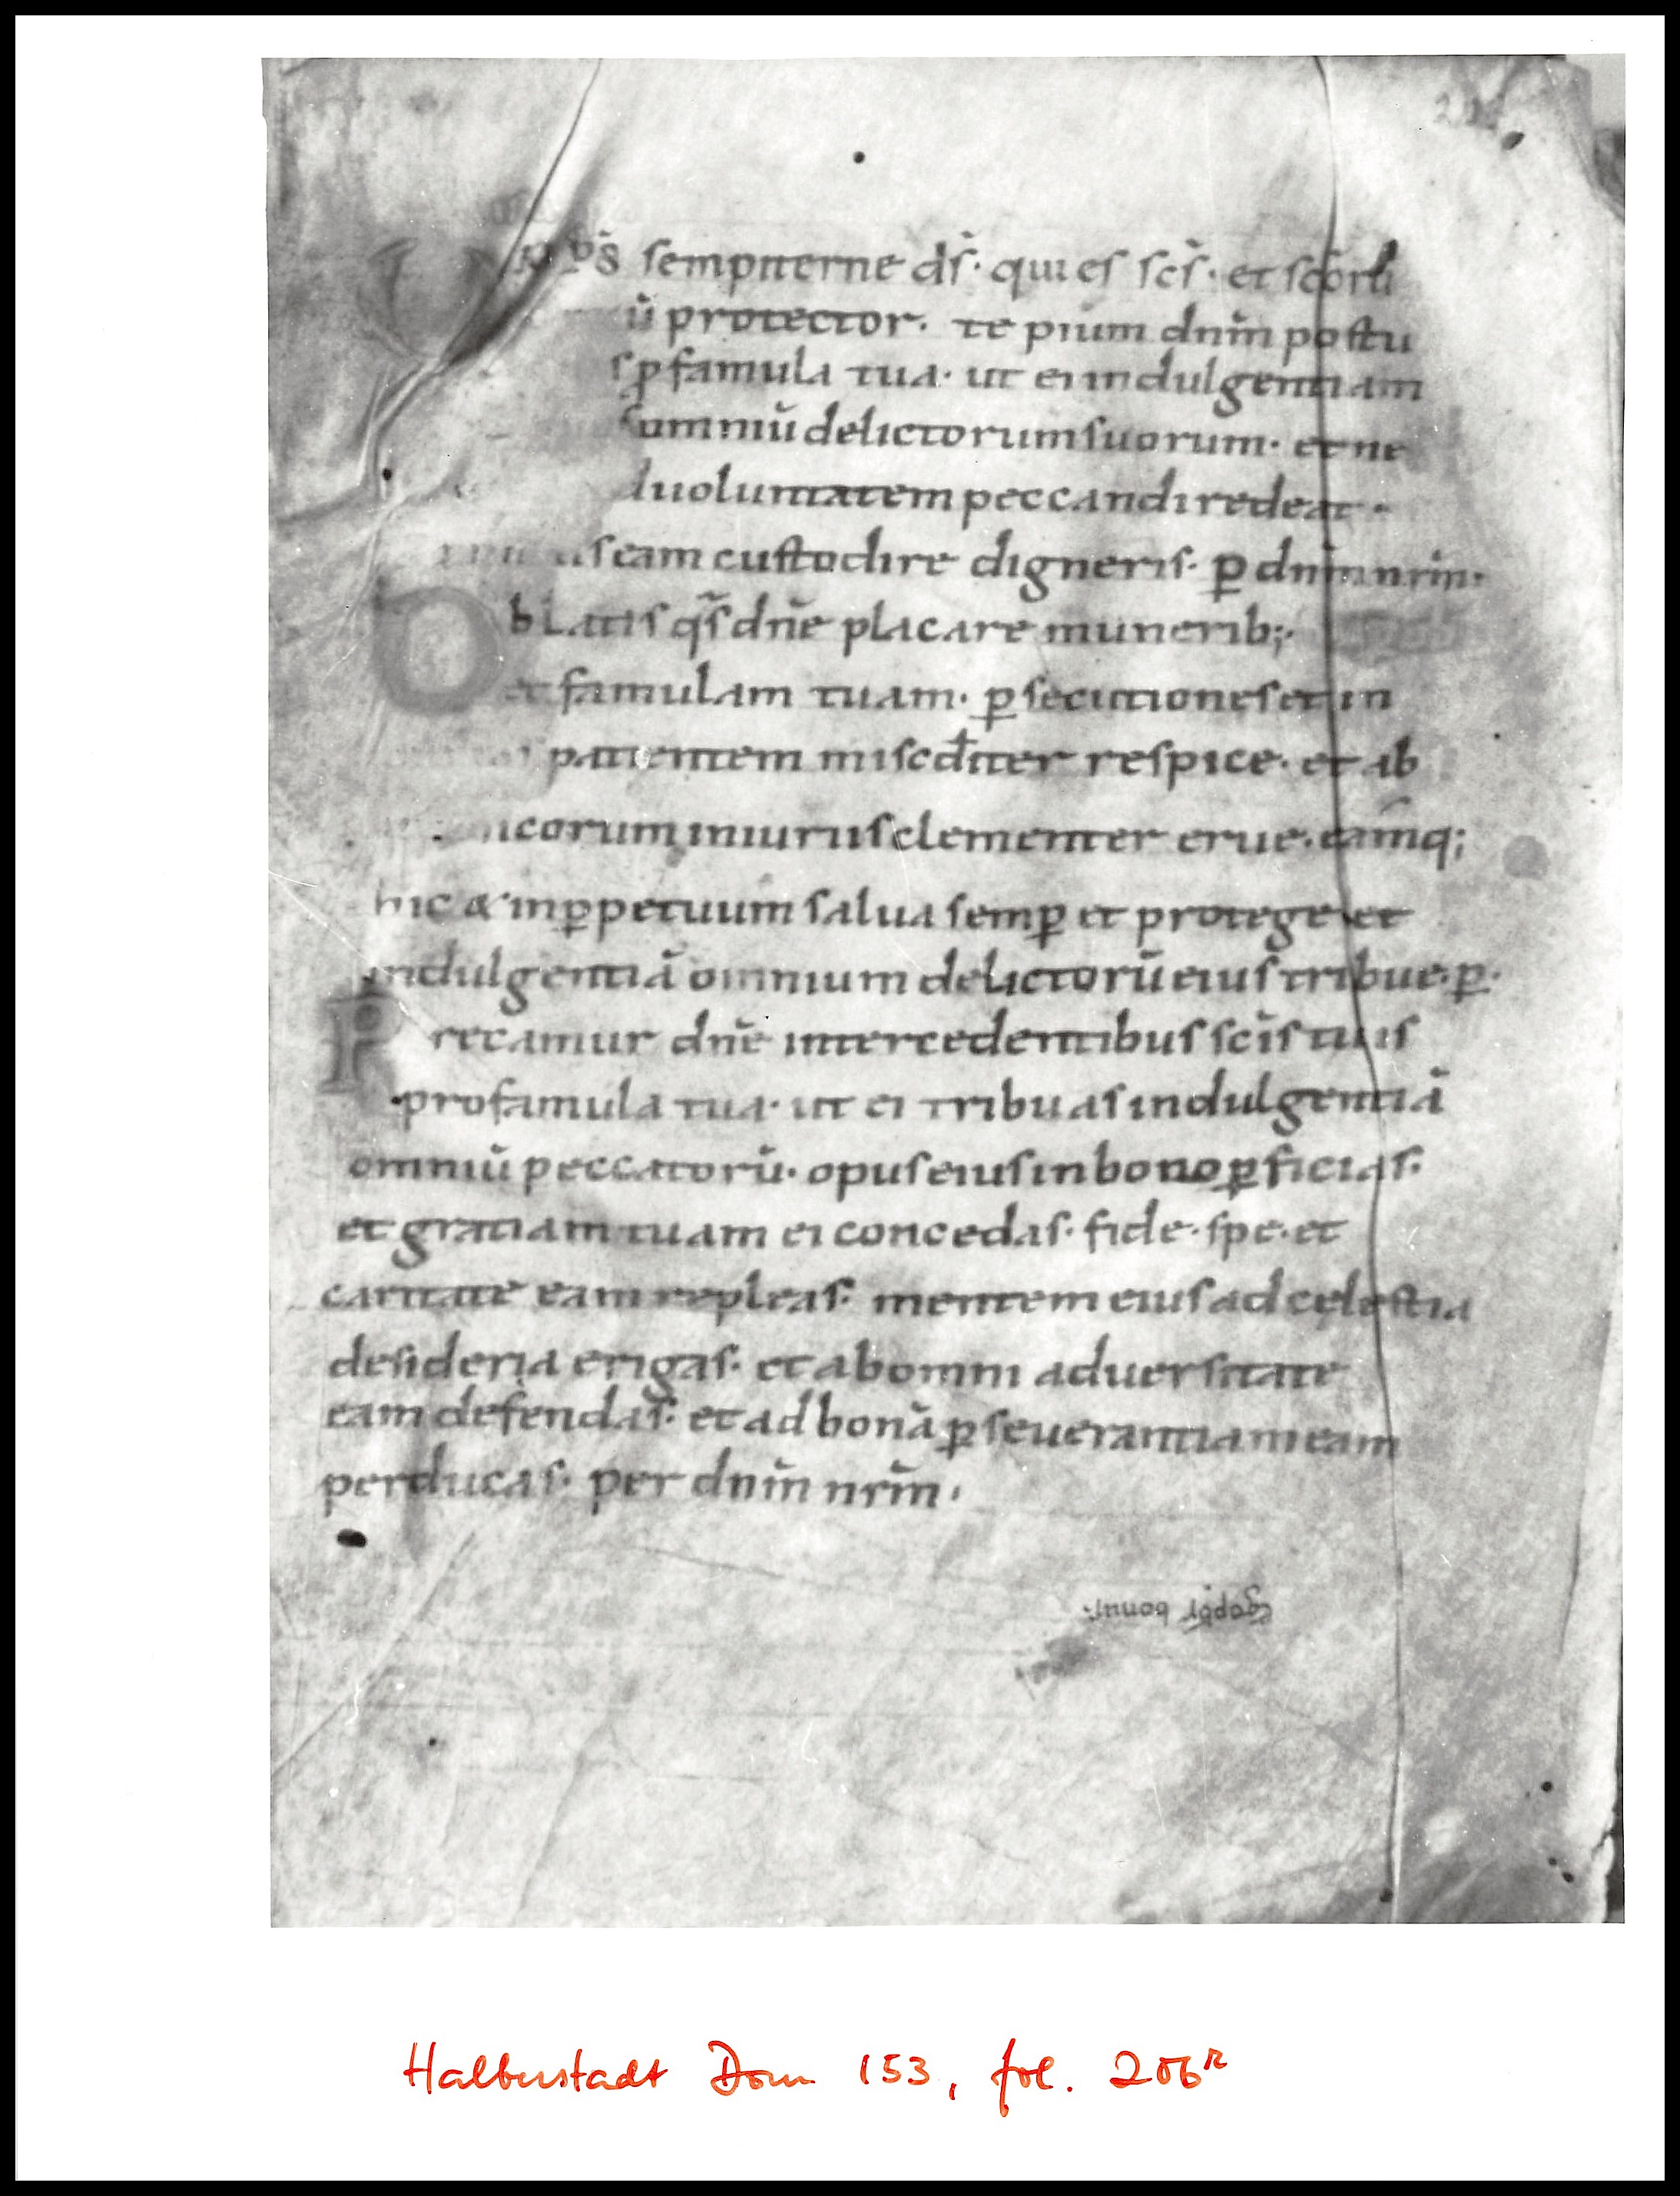 sempiterne ds̄· qui es scs̄· et scōrū
protector· te pium dnm̄ postu
ꝑ famula tua· ut ei indulgentiam
ommiū delictorum suorum· et ne
uoluntatem peccandi redeat·
eam custodire digneris· ꝑ dnm̄ nrm̄·
Oblatis qs̄ dnē placare munerib;·
et famulam tuam· ꝑsecutiones et in
patientem miscd̄iter respice· et ab
icorum iniuriis clementer erue· eamq;
hic & inꝑpetuum salua semꝑ et protege et
indulgentiā omnium delictorū eius tribue· ꝑ·
Precamur dnē intercedentibus scīs tuis
pro famula tua· ut ei tribuas indulgentiā
omniū peccatorū· opus eius in bono ꝑficias·
et gratiam tuam ei concedas· fide· spe· et
caritate eam repleas· mentem eius ad cęlestia
desideria erigas· et ab omni aduersitate
eam defendas· et ad bonā ꝑseuerantiam eam
perducas· per dnm̄ nrm̄·
bonus·
Halberstadt Dom 153, fol. 206r